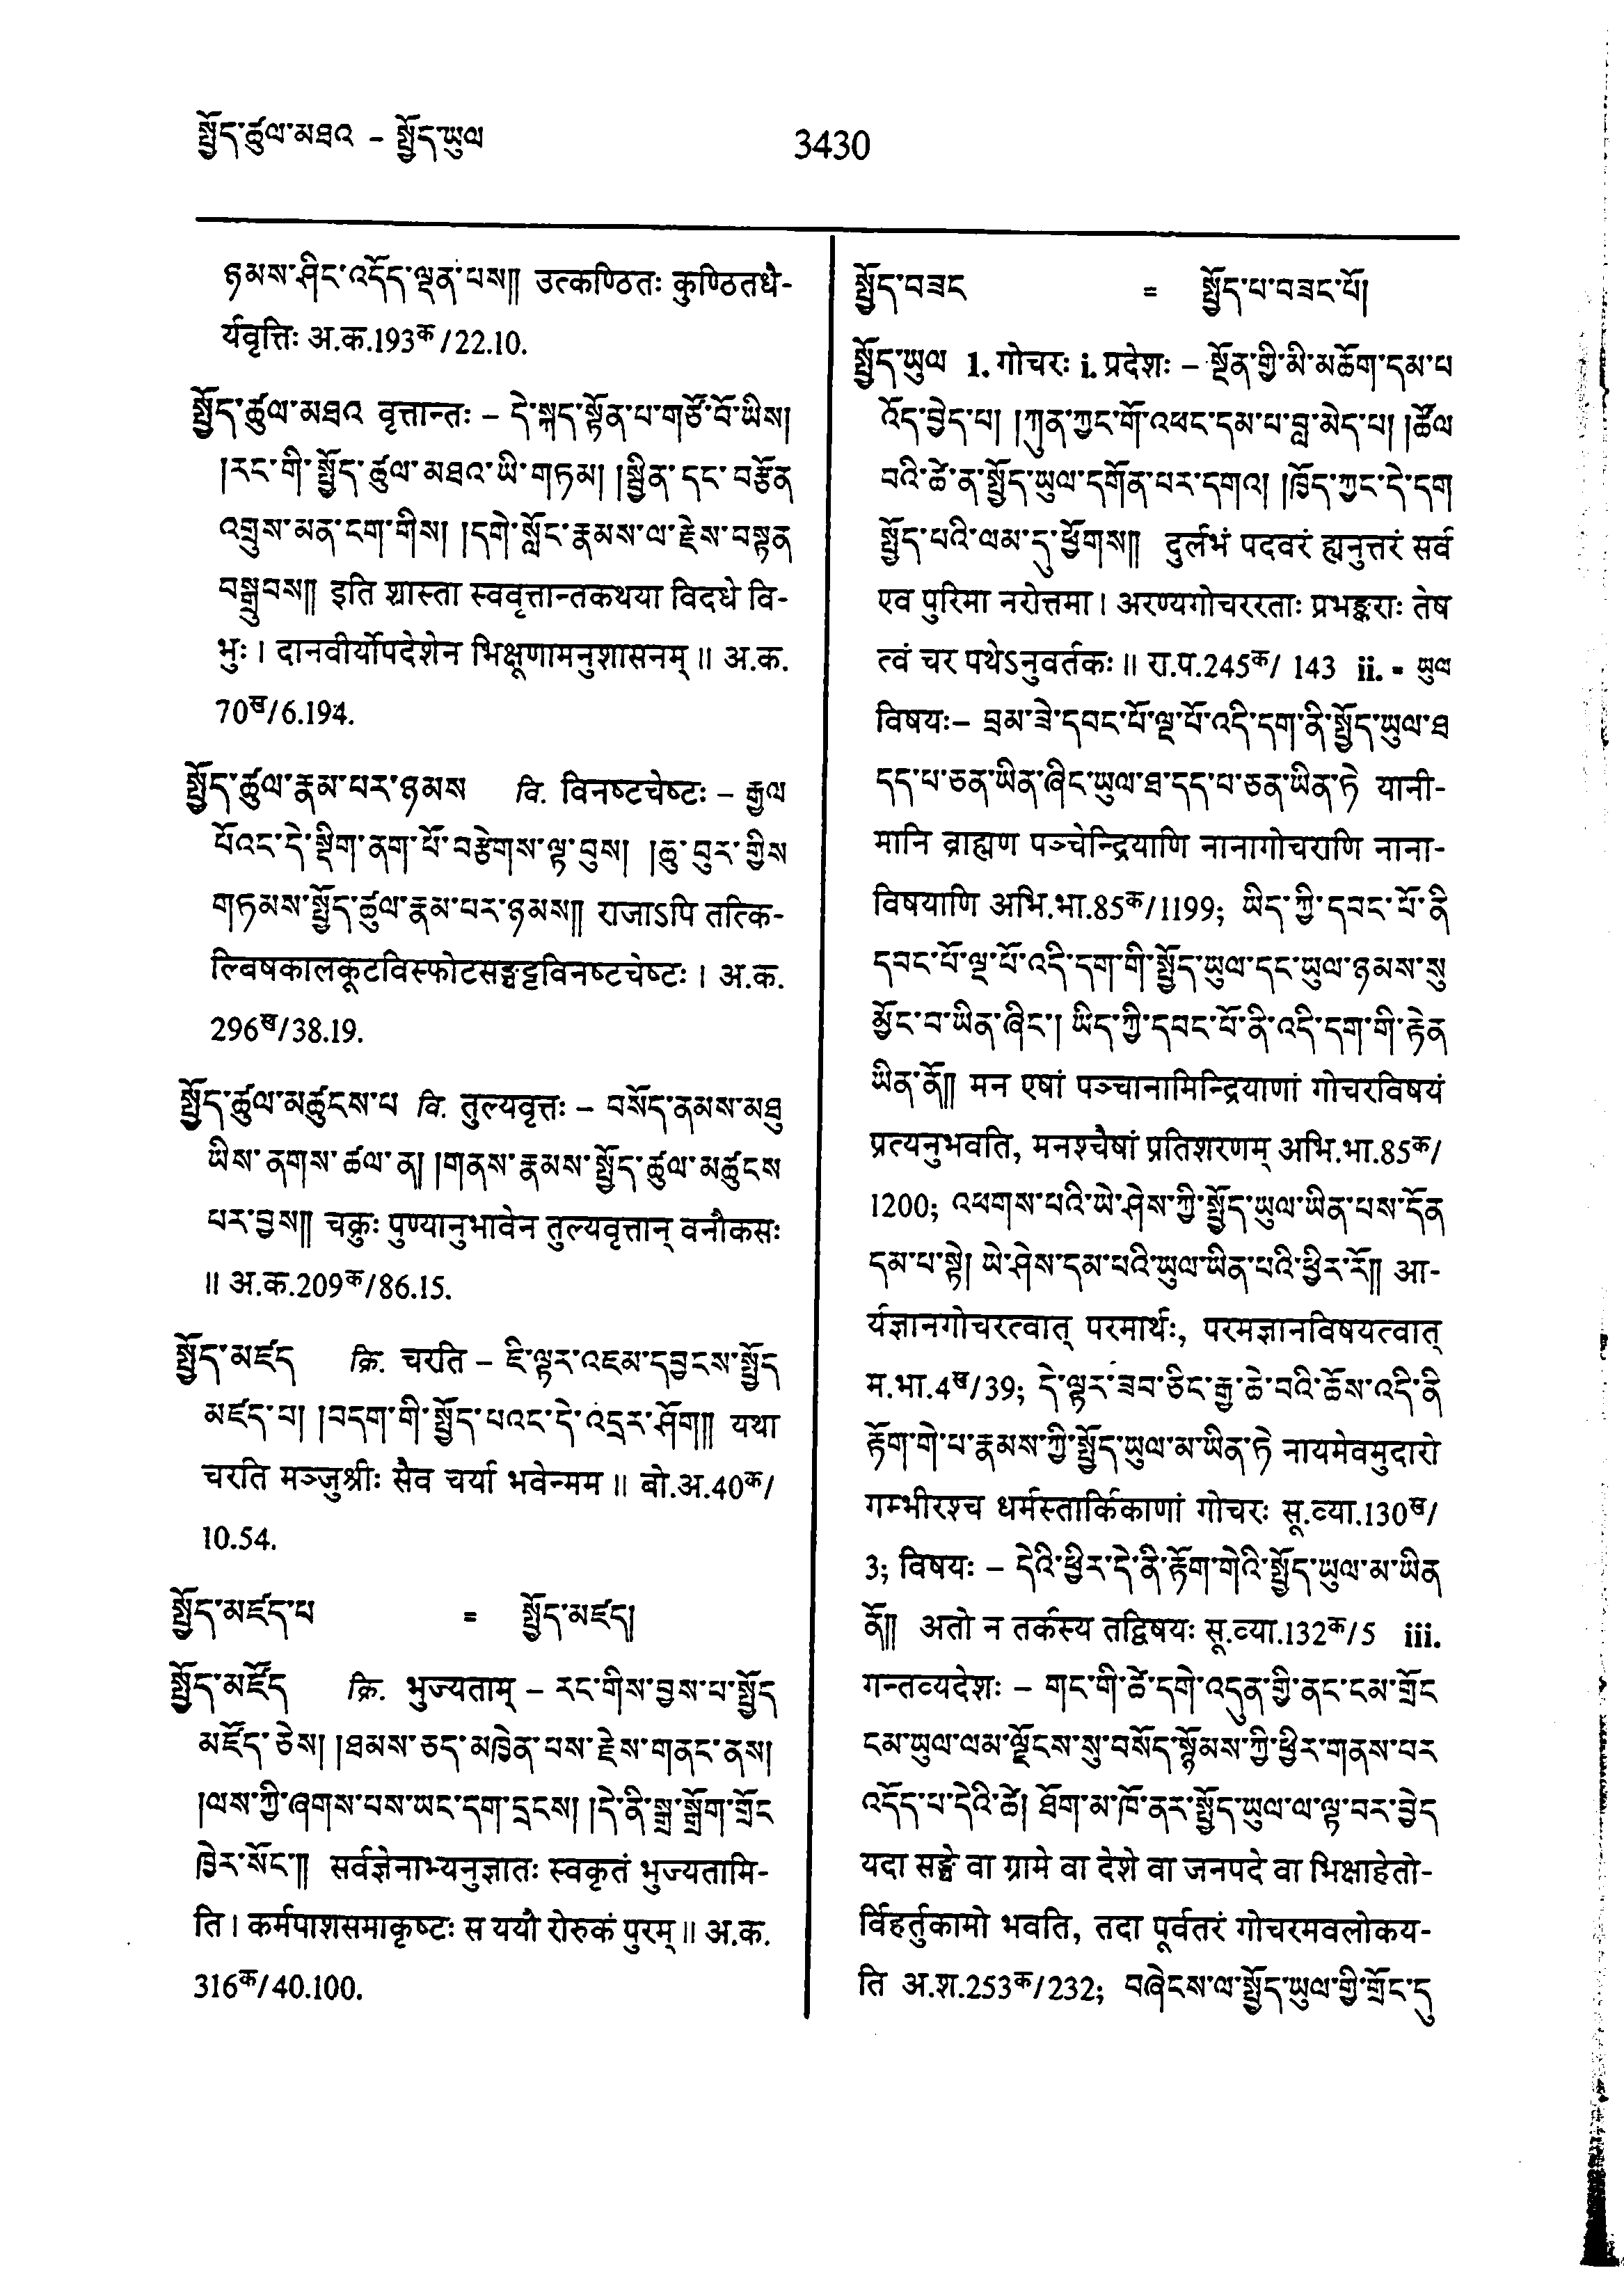 སྤྱོད་ཚུལ་མཐའ – སྤྱོད་ཡུལ
3430
ཉམས་ཤིང་འདོད་ལྡན་པས།། उत्कण्ठितः कुण्ठितधै-
र्यवृत्तिः अ.क.193क/22.10.
སྤྱོད་ཚུལ་མཐའ वृत्तान्तः – དེ་སྐད་སྟོན་པ་གཙོ་བོ་ཡིས།
།རང་གི་སྤྱོད་ཚུལ་མཐའ་ཡི་གཏམ། །སྦྱིན་དང་བརྩོན
འགྲུས་མན་ངག་གིས། །དགེ་སློང་རྣམས་ལ་རྗེས་བསྟན
བསྒྲུབས།། इति शास्ता स्ववृत्तान्तकथया विदधे वि-
भुः । दानवीर्योपदेशेन भिक्षूणामनुशासनम् ॥ अ.क.
70ख/6.194.
སྤྱོད་ཚུལ་རྣམ་པར་ཉམས वि. विनष्टचेष्टः – རྒྱལ
པོའང་དེ་སྡིག་ནག་པོ་བརྩེགས་ལྟ་བུས། །ཆུ་བུར་གྱིས
གཏམས་སྤྱོད་ཚུལ་རྣམ་པར་ཉམས།། राजाऽपि तत्कि-
ल्विषकालकूटविस्फोटसङ्घट्टविनष्टचेष्टः । अ.क.
296ख/38.19.
སྤྱོད་ཚུལ་མཚུངས་པ वि. तुल्यवृत्तः – བསོད་ནམས་མཐུ
ཡིས་ནགས་ཚལ་ན། །གནས་རྣམས་སྤྱོད་ཚུལ་མཚུངས
པར་བྱས།། चक्रुः पुण्यानुभावेन तुल्यवृत्तान् वनौकसः
॥ अ.क.209क/86.15.
སྤྱོད་མཛད क्रि. चरति – ཇི་ལྟར་འཇམ་དབྱངས་སྤྱོད
མཛད་པ། །བདག་གི་སྤྱོད་པའང་དེ་འདྲར་ཤོག།། यथा
चरति मञ्जुश्रीः सैव चर्या भवेन्मम ॥ बो.अ.40क/
10.54.
སྤྱོད་མཛད་པ = སྤྱོད་མཛད།
སྤྱོད་མཛོད क्रि. भुज्यताम् – རང་གིས་བྱས་པ་སྤྱོད
མཛོད་ཅེས། །ཐམས་ཅད་མཁྱེན་པས་རྗེས་གནང་ནས།
།ལས་ཀྱི་ཞགས་པས་ཡང་དག་དྲངས། །དེ་ནི་སྒྲ་སྒྲོག་གྲོང
ཁྱེར་སོང་།། सर्वज्ञेनाभ्यनुज्ञातः स्वकृतं भुज्यतामि-
ति । कर्मपाशसमाकृष्टः स ययौ रोरुकं पुरम् ॥ अ.क.
316क/40.100.
སྤྱོད་བཟང = སྤྱོད་པ་བཟང་པོ།
སྤྱོད་ཡུལ 1. गोचरः i. प्रदेशः – སྔོན་གྱི་མི་མཆོག་དམ་པ
འོད་བྱེད་པ། །ཀུན་ཀྱང་གོ་འཕང་དམ་པ་བླ་མེད་པ། །ཚོལ
བའི་ཚེ་ན་སྤྱོད་ཡུལ་དགོན་པར་དགའ། །ཁྱོད་ཀྱང་དེ་དག
སྤྱོད་པའི་ལམ་དུ་ཕྱོགས།། दुर्लभं पदवरं ह्यनुत्तरं सर्व
एव पुरिमा नरोत्तमा । अरण्यगोचररताः प्रभङ्कराः तेष
त्वं चर पथेऽनुवर्तकः ॥ रा.प.245क/ 143 ii. = ཡུལ
विषयः– བྲམ་ཟེ་དབང་པོ་ལྔ་པོ་འདི་དག་ནི་སྤྱོད་ཡུལ་ཐ
དད་པ་ཅན་ཡིན་ཞིང་ཡུལ་ཐ་དད་པ་ཅན་ཡིན་ཏེ यानी-
मानि ब्राह्मण पञ्चेन्द्रियाणि नानागोचराणि नाना-
विषयाणि अभि.भा.85क/1199; ཡིད་ཀྱི་དབང་པོ་ནི
དབང་པོ་ལྔ་པོ་འདི་དག་གི་སྤྱོད་ཡུལ་དང་ཡུལ་ཉམས་སུ
མྱོང་བ་ཡིན་ཞིང་། ཡིད་ཀྱི་དབང་པོ་ནི་འདི་དག་གི་རྟེན
ཡིན་ནོ།། मन एषां पञ्चानामिन्द्रियाणां गोचरविषयं
प्रत्यनुभवति, मनश्चैषां प्रतिशरणम् अभि.भा.85क/
1200; འཕགས་པའི་ཡེ་ཤེས་ཀྱི་སྤྱོད་ཡུལ་ཡིན་པས་དོན
དམ་པ་སྟེ། ཡེ་ཤེས་དམ་པའི་ཡུལ་ཡིན་པའི་ཕྱིར་རོ།། आ-
र्यज्ञानगोचरत्वात् परमार्थः, परमज्ञानविषयत्वात्
म.भा.4ख/39; དེ་ལྟར་ཟབ་ཅིང་རྒྱ་ཆེ་བའི་ཆོས་འདི་ནི
རྟོག་གེ་པ་རྣམས་ཀྱི་སྤྱོད་ཡུལ་མ་ཡིན་ཏེ नायमेवमुदारो
गम्भीरश्च धर्मस्तार्किकाणां गोचरः सू.व्या.130ख/
3; विषयः – དེའི་ཕྱིར་དེ་ནི་རྟོག་གེའི་སྤྱོད་ཡུལ་མ་ཡིན
ནོ།། अतो न तर्कस्य तद्विषयः सू.व्या.132क/5 iii.
गन्तव्यदेशः – གང་གི་ཚེ་དགེ་འདུན་གྱི་ནང་ངམ་གྲོང
ངམ་ཡུལ་ལམ་ལྗོངས་སུ་བསོད་སྙོམས་ཀྱི་ཕྱིར་གནས་པར
འདོད་པ་དེའི་ཚེ། ཐོག་མ་ཁོ་ནར་སྤྱོད་ཡུལ་ལ་ལྟ་བར་བྱེད
यदा सङ्घे वा ग्रामे वा देशे वा जनपदे वा भिक्षाहेतो-
र्विहर्तुकामो भवति, तदा पूर्वतरं गोचरमवलोकय-
ति अ.श.253क/232; བཞེངས་ལ་སྤྱོད་ཡུལ་གྱི་གྲོང་དུ